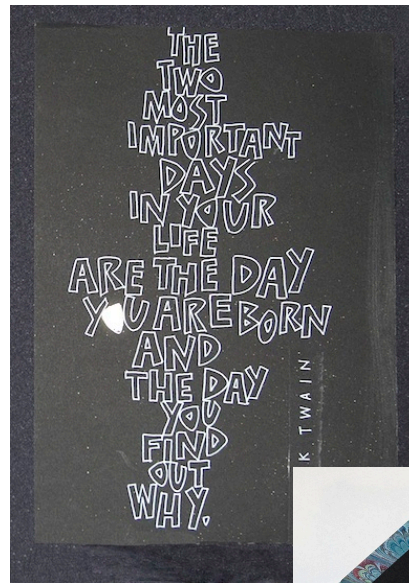 THE
TWO
MOST
IMPORTANT
DAYS
IN YOUR
LIFE
ARE THE DAY
YOU ARE BORN
AND
THE DAY
YOU
FIND
OUT
WHY.
K TWAIN